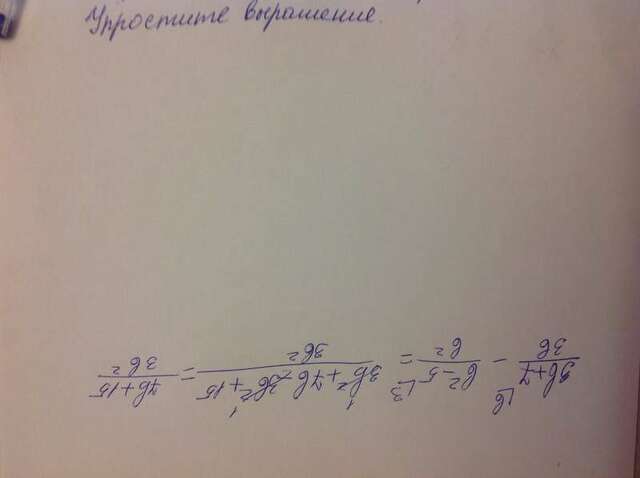 Упростите выражение.
(3b+7)/(3b) - (b²-5)/(b²) = (3b²+7b-3b²+15)/(3b²) = (7b+15)/(3b²)